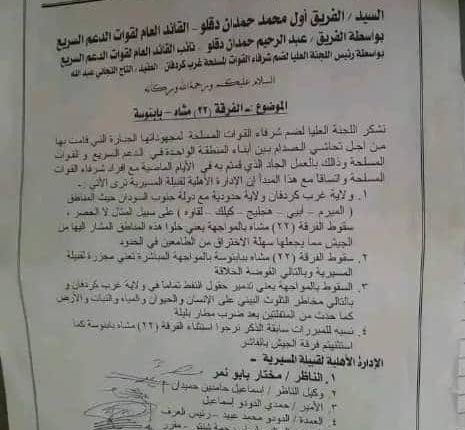 السيد / الفريق أول محمد حمدان دقلو - القائد العام لقوات الدعم السريع
بواسطة الفريق / عبد الرحيم حمدان دقلو - نائب القائد العام لقوات الدعم السريع
بواسطة رئيس اللجنة العليا لضم شرفاء القوات المسلحة غرب كردفان العقيد / التاج التجاني عبد الله
السلام عليكم ورحمة الله وبركاته
الموضوع :- الفرقة (٢٢) مشاه - بابنوسة
تشكر اللجنة العليا لضم شرفاء القوات المسلحة لمجهوداتها الجبارة التي قامت بها
من اجل تحاشي الصدام بين أبناء المنطقة الواحدة في الدعم السريع و القوات
المسلحة وذلك بالعمل الجاد الذي قمتم به في الأيام الماضية مع افراد شرفاء القوات
المسلحة واتساقا مع هذا المبدأ إن الإدارة الأهلية لقبيلة المسيرية ترى الآتي :-
١. ولاية غرب كردفان ولاية حدودية مع دولة جنوب السودان حيث المناطق
( الميرم - أبيي - هجليج - كيلك - لقاوه ) على سبيل المثال لا الحصر ،
سقوط الفرقة (٢٢) مشاه بالمواجهة يعني خلوا هذه المناطق المشار إليها من
الجيش مما يجعلها سهلة الاختراق من الطامعين في الحدود
٢. سقوط الفرقة (٢٢) مشاه ببابنوسة بالمواجهة المباشرة تعني مجزرة لقبيلة
المسيرية وبالتالي الفوضة الخلاقة
٣. السقوط بالمواجهة يعني تدمير حقول النفط تماما في ولاية غرب كردفان و
بالتالي مخاطر التلوث البيئي على الإنسان والحيوان والمياه والنبات والارض
كما حدث من المتفلتين بعد ضرب مطار بليلة
٤. نسبه للمبررات سابقة الذكر نرجوا استثناء الفرقة (٢٢) مشاه بابنوسة كما
استثنيتم فرقة الجيش بالفاشر
الإدارة الأهلية لقبيلة المسيرية :-
١. الناظر / مختار بابو نمر
٢. وكيل الناظر / اسماعيل حامدين حميدان
٣. الأمير / حمدي الدودو إسماعيل
٤. العمدة / الدودو محمد عبيد - رئيس العرف